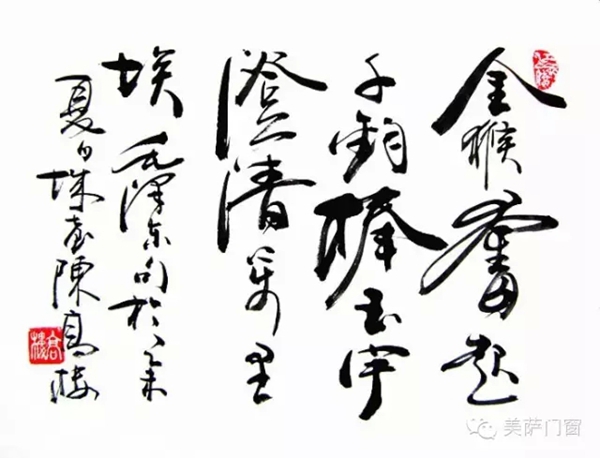 金猴奮起
千鈞棒玉宇
澄清萬里
埃 毛澤東句於乙未
夏日珠 陳高樓
美萨门窗